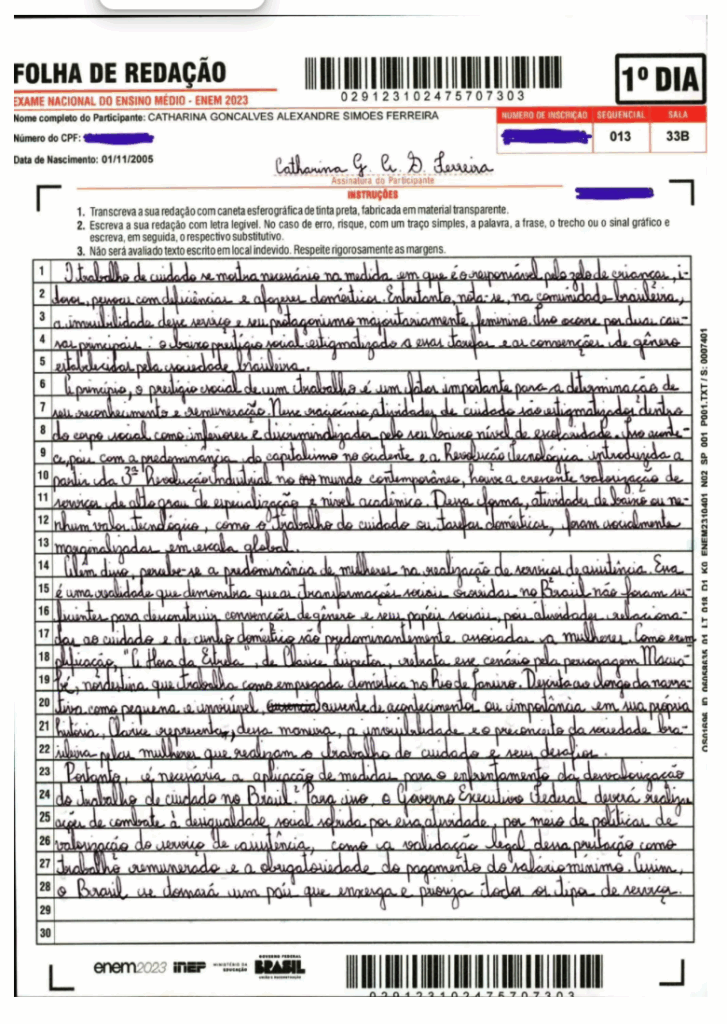 FOLHA DE REDAÇÃO
EXAME NACIONAL DO ENSINO MÉDIO - ENEM 2023
029123102475707303
1º DIA
Nome completo do Participante: CATHARINA GONCALVES ALEXANDRE SIMOES FERREIRA
Número do CPF:
Data de Nascimento: 01/11/2005
NÚMERO DE INSCRIÇÃO SEQUENCIAL SALA
013 33B
Catharina G. Ferreira
Assinatura do Participante
INSTRUÇÕES
1. Transcreva a sua redação com caneta esferográfica de tinta preta, fabricada em material transparente.
2. Escreva a sua redação com letra legível. No caso de erro, risque, com um traço simples, a palavra, a frase, o trecho ou o sinal gráfico e
escreva, em seguida, o respectivo substitutivo.
3. Não será avaliado texto escrito em local indevido. Respeite rigorosamente as margens.
1 O trabalho de cuidado se mostra necessário na medida em que é o responsável pelo zelo de crianças, i-
2 dosos, pessoas com deficiências e afazeres domésticos. Entretanto, nota-se, na comunidade brasileira,
3 a invisibilidade desse serviço e seu protagonismo majoritariamente feminino. Isso ocorre por duas cau-
4 sas principais: o baixo prestígio social estigmatizado a essas tarefas e as convenções de gênero
5 estabelecidas pela sociedade brasileira.
6 A princípio, o prestígio social de um trabalho é um fator importante para a determinação de
7 seu reconhecimento e remuneração. Nesse raciocínio, atividades de cuidado são estigmatizadas dentro
8 do corpo social como inferiores e discriminalizadas pelo seu baixo nível de escolaridade. Isso aconte-
9 ce, pois com a predominância do capitalismo no ocidente e a Revolução Tecnológica introduzida a
10 partir da 3ª Revolução Industrial no mundo contemporâneo, houve a crescente valorização de
11 serviços de alto grau de especialização e nível acadêmico. Dessa forma, atividades de baixo ou ne-
12 nhum valor tecnológico, como o trabalho do cuidado ou tarefas domésticas, foram socialmente
13 marginalizadas em escala global.
14 Além disso, percebe-se a predominância de mulheres na realização de serviços de assistência. Essa
15 é uma realidade que demonstra que as transformações sociais ocorridas no Brasil não foram su-
16 ficientes para desconstruir convenções de gênero e seus papéis sociais, pois atividades relaciona-
17 das ao cuidado e de cunho doméstico são predominantemente associadas a mulheres. Como exem-
18 plificação, "A Hora da Estrela", de Clarice Lispector, retrata esse cenário pela personagem Macabé-
19 a, nordestina que trabalha como empregada doméstica no Rio de Janeiro. Descrita ao longo da narra-
20 tiva como pequena e invisível, ausente de acontecimentos ou importância em sua própria
21 história, Clarice representa, dessa maneira, a invisibilidade e o preconceito da sociedade bra-
22 sileira pelas mulheres que realizam o trabalho do cuidado e seus desafios.
23 Portanto, é necessária a aplicação de medidas para o enfrentamento da desvalorização
24 do trabalho de cuidado no Brasil. Para isso, o Governo Executivo Federal deverá realizar
25 ações de combate à desigualdade social sofrida por essa atividade, por meio de políticas de
26 valorização do serviço de assistência, como a validação legal dessa prestação como
27 trabalho remunerado e a obrigatoriedade do pagamento do salário mínimo. Assim,
28 o Brasil se tornará um país que enxerga e prioriza todos os tipos de serviço.
29
30
enem2023 inep MINISTÉRIO DA EDUCAÇÃO GOVERNO FEDERAL BRASIL UNIÃO E RECONSTRUÇÃO
029123102475707303